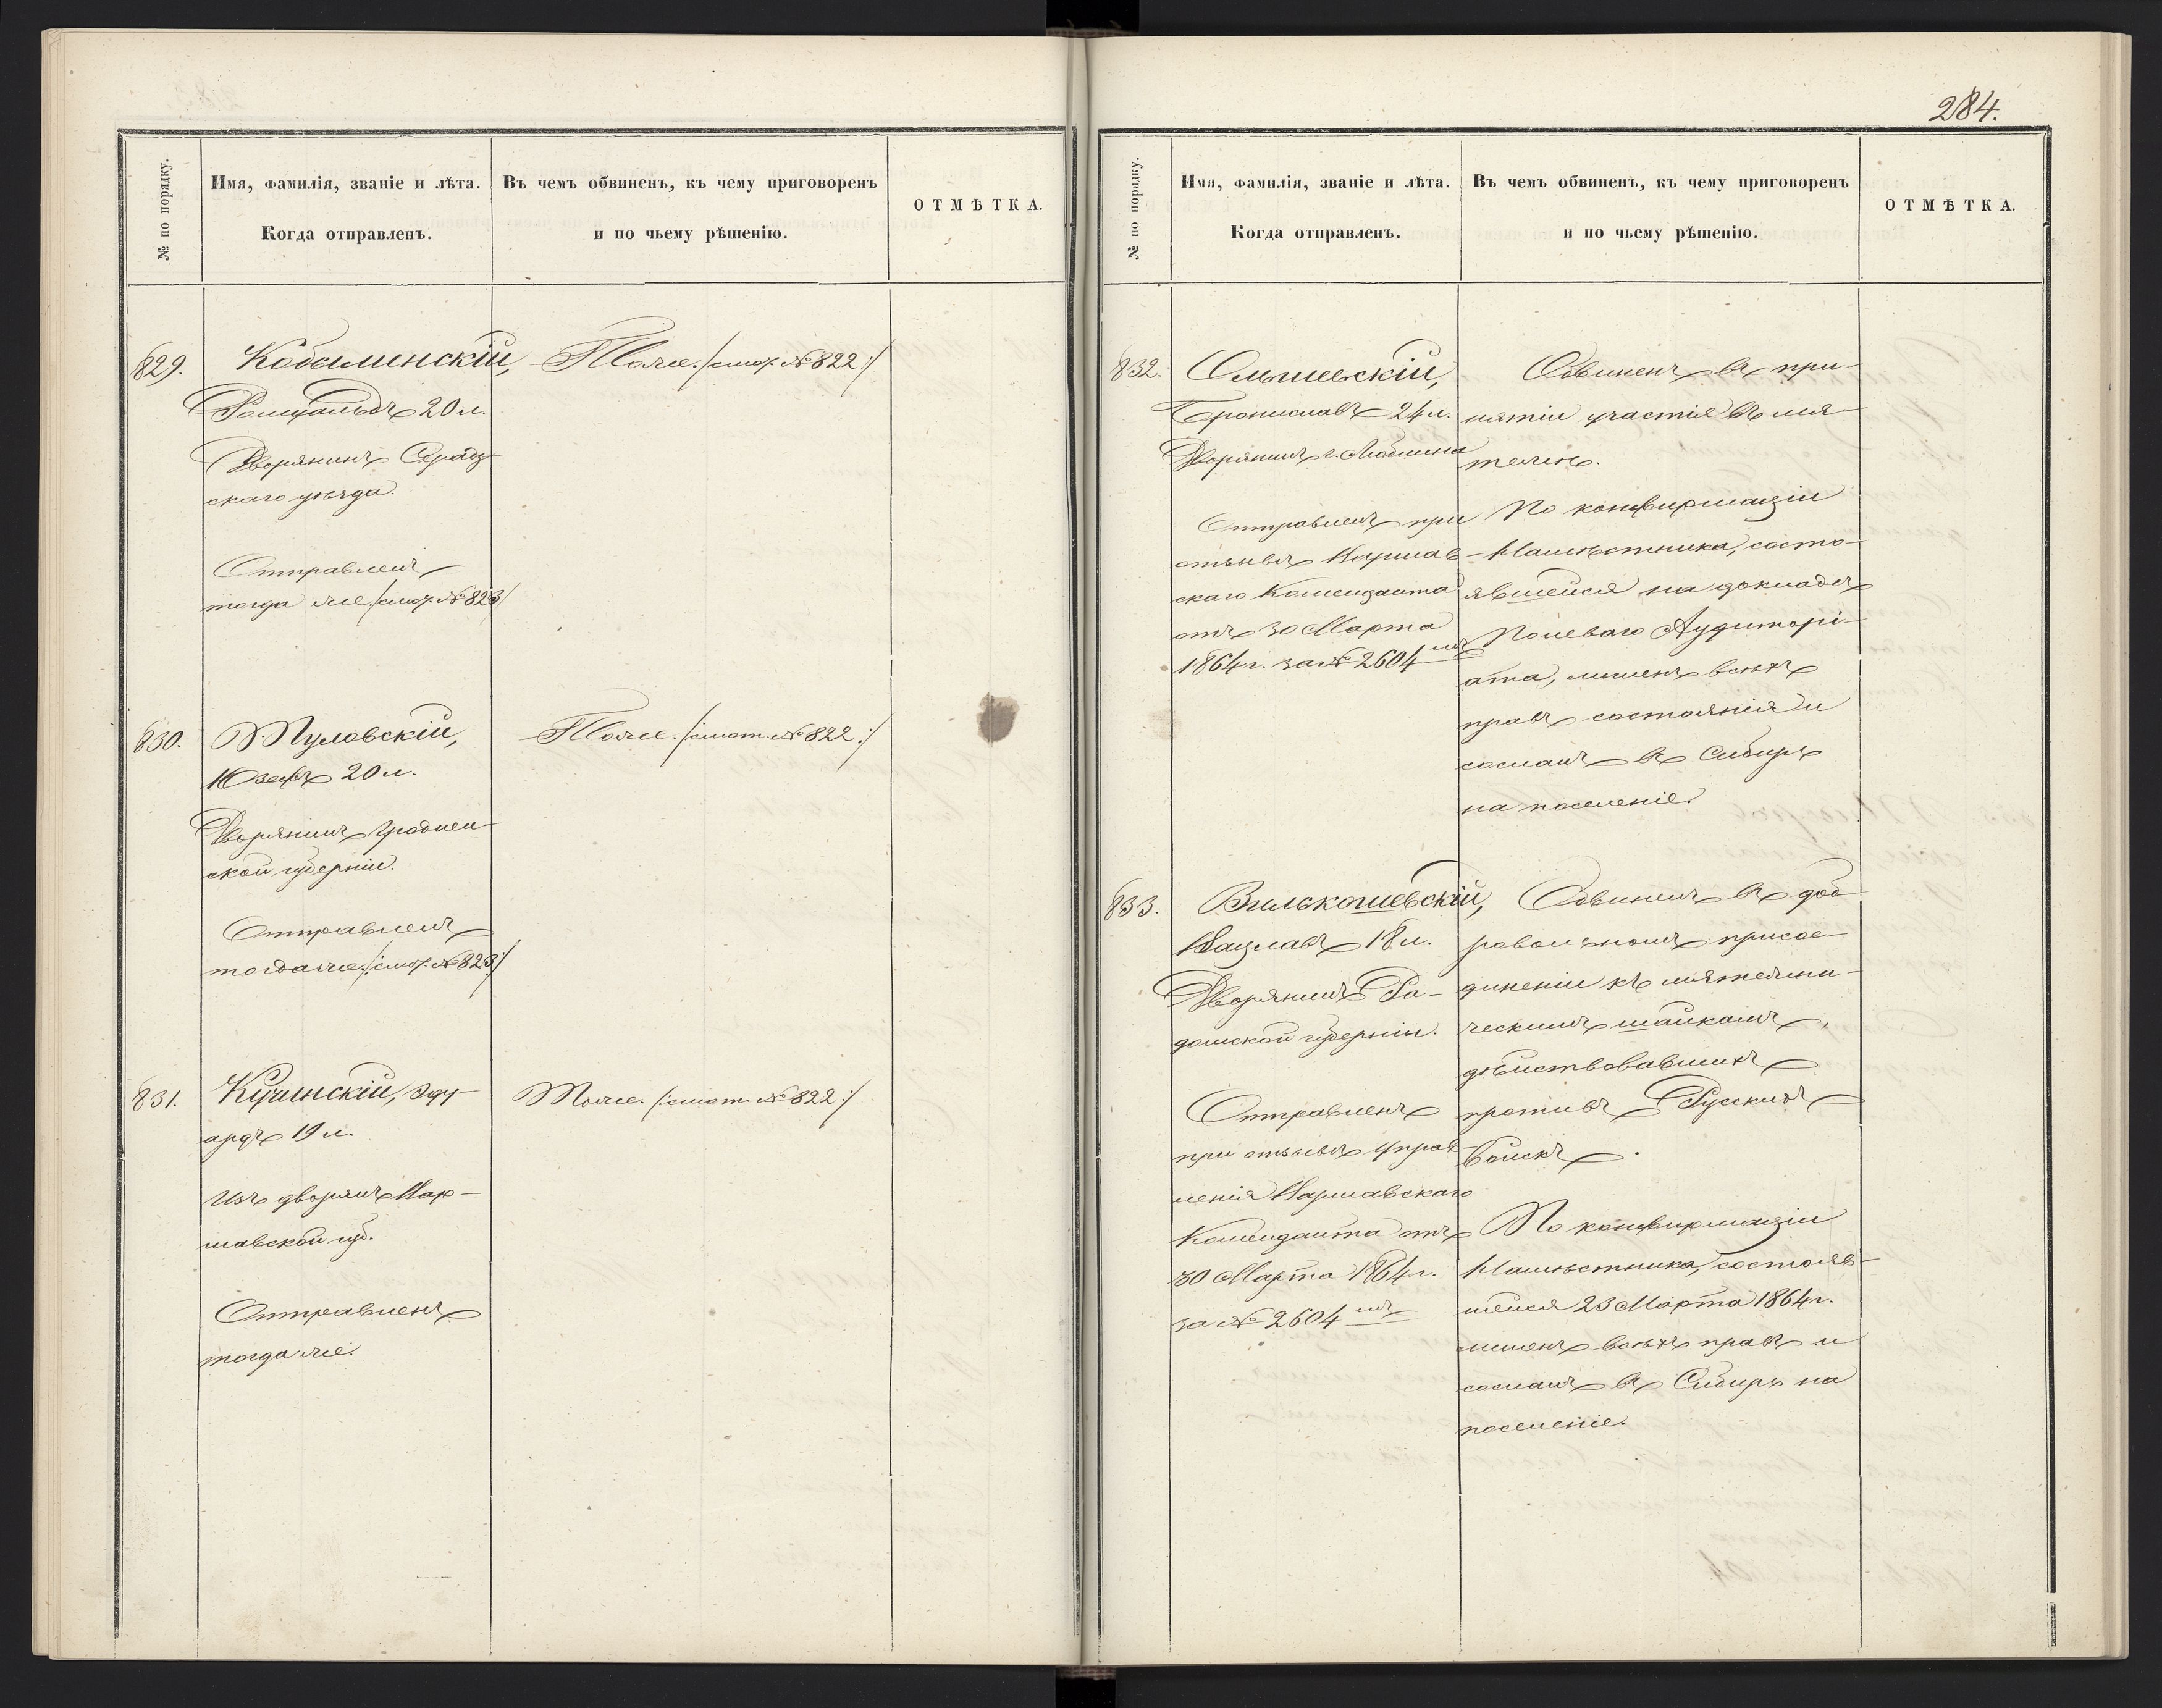 № по порядку.
Имя, фамилія, званіе и лѣта.
Когда отправленъ.
Въ чемъ обвиненъ, къ чему приговоренъ
и по чьему рѣшенію.
ОТМѢТКА.
829.
Кобылинскій,
Ромуальдъ 20 л.
Дворянинъ Серадз-
скаго уѣзда.
Отправленъ
тогда же /:смот. № 823/
Тоже. /:смот. № 822:/
830.
Пуловскій,
Юзефъ 20 л.
Дворянинъ Гроднен-
ской губерніи.
Отправленъ
тогда же. /:смот. № 823:/
Тоже. /:смот. № 822:/
831.
Кучинскій, Эду-
ардъ 19 л.
Изъ дворянъ Вар-
шавской губ.
Отправленъ
тогда же.
Тоже. /:смот. № 822:/
284.
№ по порядку.
Имя, фамилія, званіе и лѣта.
Когда отправленъ.
Въ чемъ обвиненъ, къ чему приговоренъ
и по чьему рѣшенію.
ОТМѢТКА.
832.
Брониславъ 24 л.
Дворянинъ г. Люблина
Отправленъ при
отзывѣ Варшав-
скаго Коменданта
отъ 30 Марта
1864 г. за № 2604мъ
Обвиненъ въ при-
нятіи участія въ мя-
тежѣ.
По конфирмаціи
Намѣстника, состо-
явшейся на докладѣ
Полеваго Аудиторі-
ата, лишенъ всѣхъ
правъ состоянія и
сосланъ въ Сибирь
на поселеніе.
833.
Вильконшевскій,
Вацлавъ 18 л.
Дворянинъ Ра-
домской губерніи.
Отправленъ
при отзывѣ Управ-
ленія Варшавскаго
Коменданта отъ
30 Марта 1864 г.
за № 2604мъ
Обвиненъ въ доб-
ровольномъ присое-
диненіи къ мятежни-
ческимъ шайкамъ,
дѣйствовавшихъ
противъ Русскихъ
войскъ.
По конфирмаціи
Намѣстника, состояв-
шейся 23 Марта 1864 г.
лишенъ всѣхъ правъ и
сосланъ въ Сибирь на
поселеніе.